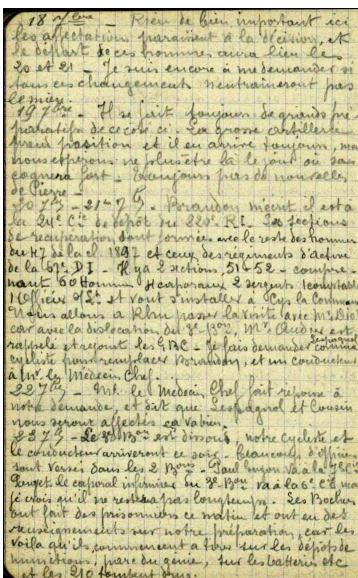 18 7bre _ Rien de bien important ici
les affectations paraissent à la décision, et
le départ de ces hommes aura lieu les
20 et 21 _ Je suis encore à me demander si
tous ces changements n'entraineront pas
le mien.
19 7bre _ Il se fait toujours de grands pré
paratifs de ce côté ci. La grosse artillerie
prend position et il en arrive toujours, mais
nous espérons ne plus être là le jour où ça
cognera fort _ Toujours pas de nouvelles
de Pierre _
20 7bre _ 21 _ 7bre _ Brandon m'écrit il est à
la 24e Cie de dépôt du RI. Les sections
de récupération sont formées avec le reste des hommes
du H7 de la cl. 1897 et ceux des régiments d'active
de la 67e D.I _ Il y a 2 sections, 51 _ 52 _ compre
nant 60 Hommes 4 caporaux 2 sergents 1 comptable
1 Officier s/Lt et vont s'installer à Cys la Commune
Nous allons à passer la visite avec Mr
car avec la dislocation du 3e Bon, Mr est
rappelé et rejoint les GBC _ Je fais demander Lespagnol comme
cycliste pour remplacer Brandon, et un conducteur
à Mr le Médecin Chef _
22 7bre _ Mr le Médecin Chef fait réponse à
notre demande, et dit que Lespagnol et Cousin
nous seront affectés ça va bien _
23 7bre _ Le 3e Bon est dissout, notre cycliste et
le conducteur arriveront ce soir _ Beaucoup d'officiers
sont versés dans les 2 Bons _ Paul va à la Cie
le caporal infirmier du 3e Bon va à la 6e Cie mais
je crois qu'il ne restera pas longtemps _ Les Boches
ont fait des prisonniers ce matin et ont eu des
renseignements sur notre préparation, car les
voilà qu'ils commencent à tirer sur les dépôts de
munitions, parc du génie, sur les batteries etc
et les 210 tombent